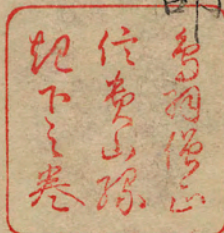 鳥羽僧正
信貴山縁
起下之巻